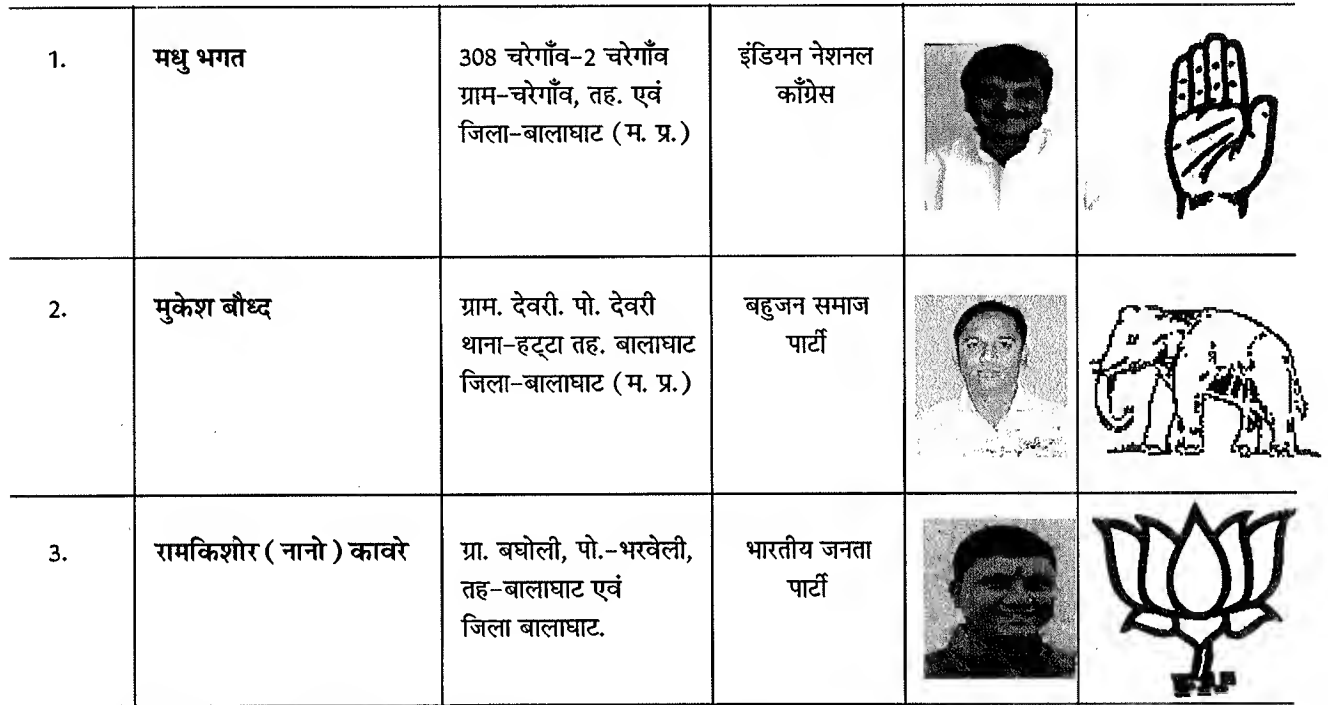 1.
मधु भगत
308 चरेगाँव-2 चरेगाँव
ग्राम-चरेगाँव, तह. एवं
जिला-बालाघाट (म. प्र.)
इंडियन नेशनल
काँग्रेस
2.
मुकेश बौध्द
ग्राम. देवरी. पो. देवरी
थाना-हट्‌टा तह. बालाघाट
जिला-बालाघाट (म. प्र.)
बहुजन समाज
पार्टी
3.
रामकिशोर ( नानो ) कावरे
ग्रा. बघोली, पो.-भरवेली,
तह-बालाघाट एवं
जिला बालाघाट.
भारतीय जनता
पार्टी